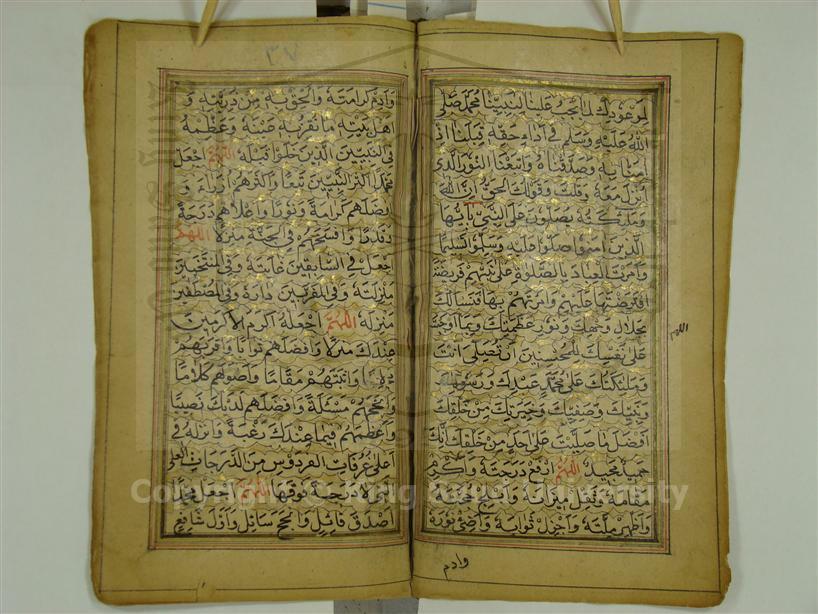 لموعودك لما يجب علينا لنبينا محمد صلى
الله عليه وسلم في اداء حقه قبلنا اذ
امنا به وصدقناه واتبعنا النور الذى
انزل معه وقلت وقولك الحق ان الله
وملائكته يصلون على النبي يا ايها
الذين امنوا صلوا عليه وسلموا تسليما
وامرت العباد بالصلوة على نبيهم فريضة
افترضتها عليهم وامرتهم بها فنسالك
بجلال وجهك ونور عظمتك وبما اوجبت
على نفسك للمحسنين ان تصلى انت
وملئكتك على محمد عبدك ورسولك
ونبيك وصفيك وخيرتك من خلقك
افضل ما صليت على احد من خلقك انك
حميد مجيد اللهم ارفع درجته واكرم
مقامه وثقل ميزانه
واظهر ملته واجزل ثوابه واضئ نوره
اللهم
وادم
٣٧
وادم كرامته والحق به من ذريته و
اهل بيته ما تقر به عينه وعظمه
في النبيين الذين خلوا قبله اللهم اجعل
محمدا اكثر النبيين تبعا واكثرهم ازراء و
افضلهم كرامة ونورا واعلاهم درجة
وافسحهم في الجنة منزلا اللهم
اجعل في السابقين غايته وفي المنتخبين
منزلته وفي المقربين داره وفي المصطفين
منزله اللهم اجعله اكرم الاكرمين
عندك منزلا وافضلهم ثوابا واقربهم
مجلسا واثبتهم مقاما واصوبهم كلاما
وانجحهم مسئلة وافضلهم لديك نصيبا
واعظمهم فيما عندك رغبة وانزله في
اعلى غرفات الفردوس من الدرجات العلى
التي لا درجة فوقها اللهم اجعل محمدا
اصدق قائل وانجح سائل واول شافع
Copyright © King Saud University